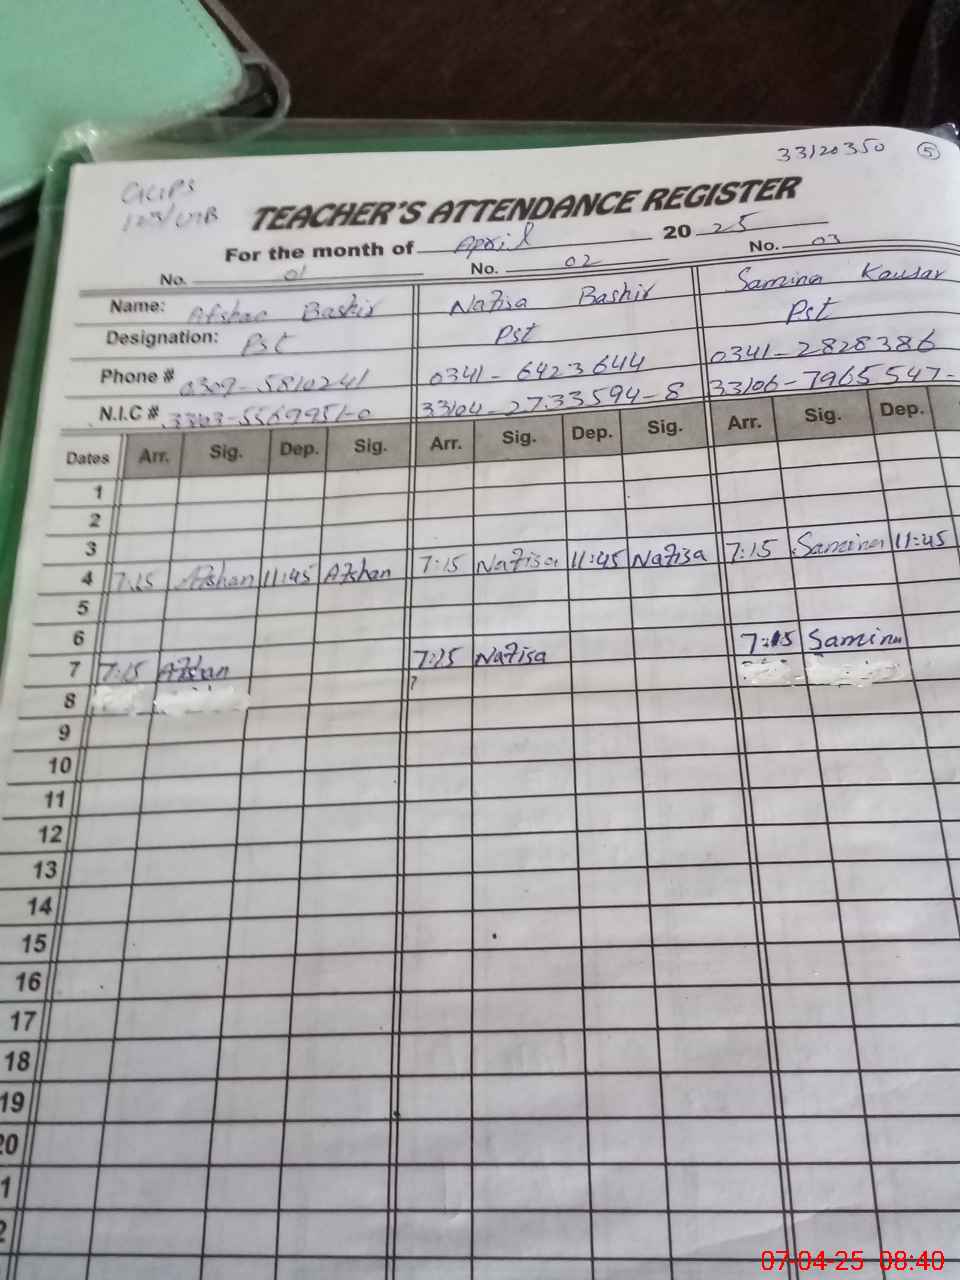 33120350 5
TEACHER'S ATTENDANCE REGISTER
For the month of April 20 25
No. 01 No. 02 No. 03
Name: Afshan Bashir Nafisa Bashir Samina Kausar
Designation: Pst Pst Pst
Phone # 0309-5810241 0341-6423644 0341-2828386
N.I.C # 33104-2733594-8 33106-7965547-
Dates Arr. Sig. Dep. Sig. Arr. Sig. Dep. Sig. Arr. Sig. Dep.
1
2
3
4 7:15 Afshan 11:45 Afshan 7:15 Nafisa 11:45 Nafisa 7:15 Samina 11:45
5
6
7 7:15 Afshan 7:15 Nafisa 7:15 Samina
8
9
10
11
12
13
14
15
16
17
18
19
20
1
2
07-04-25 08:40